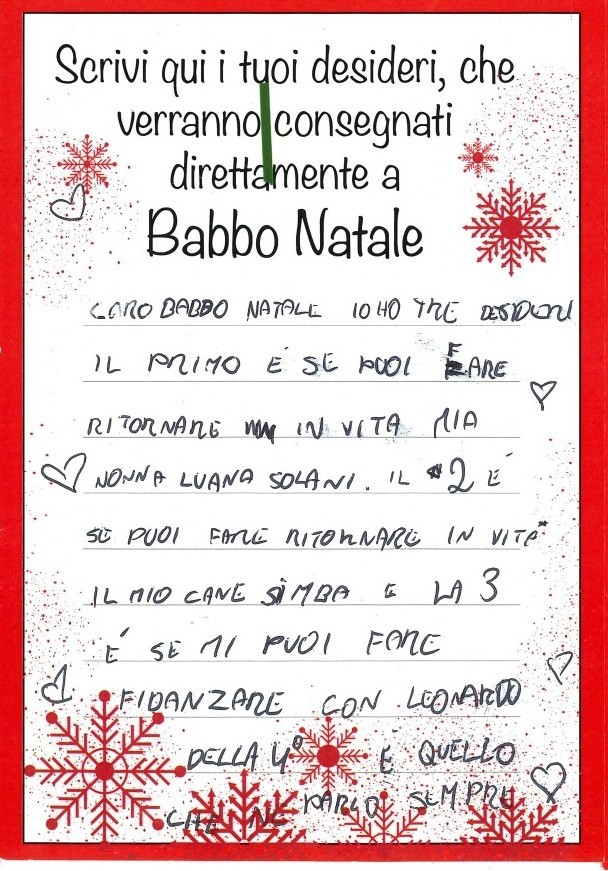 Scrivi qui i tuoi desideri, che
verranno consegnati
direttamente a
Babbo Natale
CARO BABBO NATALE IO HO TRE DESIDERI
IL PRIMO E' SE PUOI FARE
RITORNARE IN VITA MIA
NONNA LUANA SOLANI. IL 2 E'
SE PUOI FARE RITORNARE IN VITA
IL MIO CANE SIMBA E LA 3
E' SE MI PUOI FARE
FIDANZARE CON LEONARDO
DELLA 4° E' QUELLO
CHE NE PARLO SEMPRE